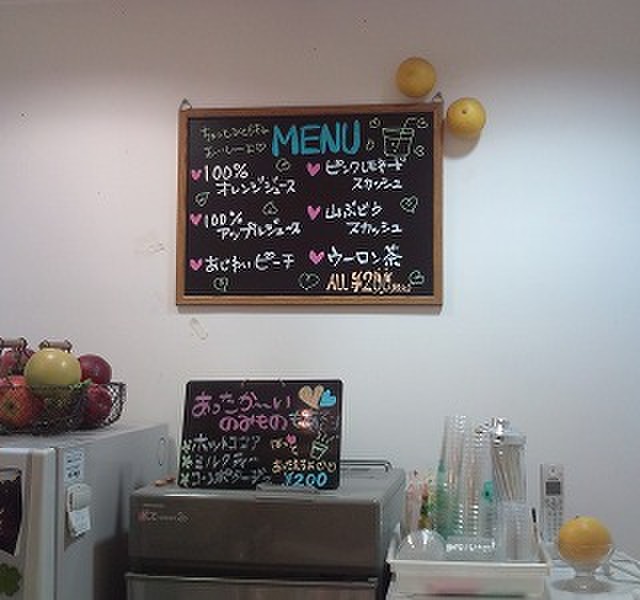 ちょっとひといき
おいしーよ♡
MENU
♥100%
オレンジジュース
♥100%
アップルジュース
♥あじわいピーチ
♥ピンクレモネード
スカッシュ
♥山ぶどう
スカッシュ
♥ウーロン茶
ALL ¥200
あったか〜い
のみもの
ホットココア
ミルクティー
コーンポタージュ
¥200